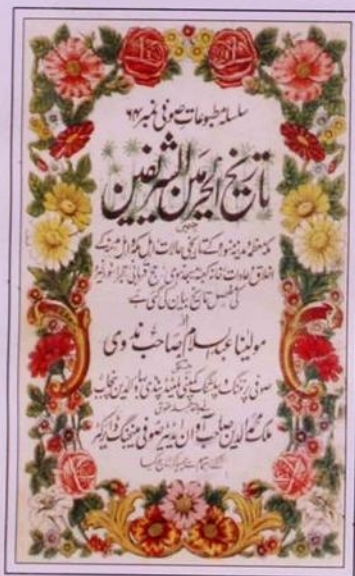 سلسلہ مطبوعات صوفی نمبر ۶۴
تاریخ الحرمین الشریفین
جسمیں
مکہ معظمہ و مدینہ منورہ کے تاریخی حالات اہل مکہ و اہل مدینہ کے
اخلاق و عادات خانہ کعبہ مسجد نبوی حج قربانی
کی مفصل تاریخ بیان کی گئی ہے
از
مولینا عبد السلام صاحب ندوی
صوفی پرنٹنگ و پبلشنگ کمپنی لمیٹڈ پنڈی بہاؤ الدین پنجاب
ملک محمد الدین صاحب آوان ایڈیٹر صوفی و منیجنگ ڈائرکٹر